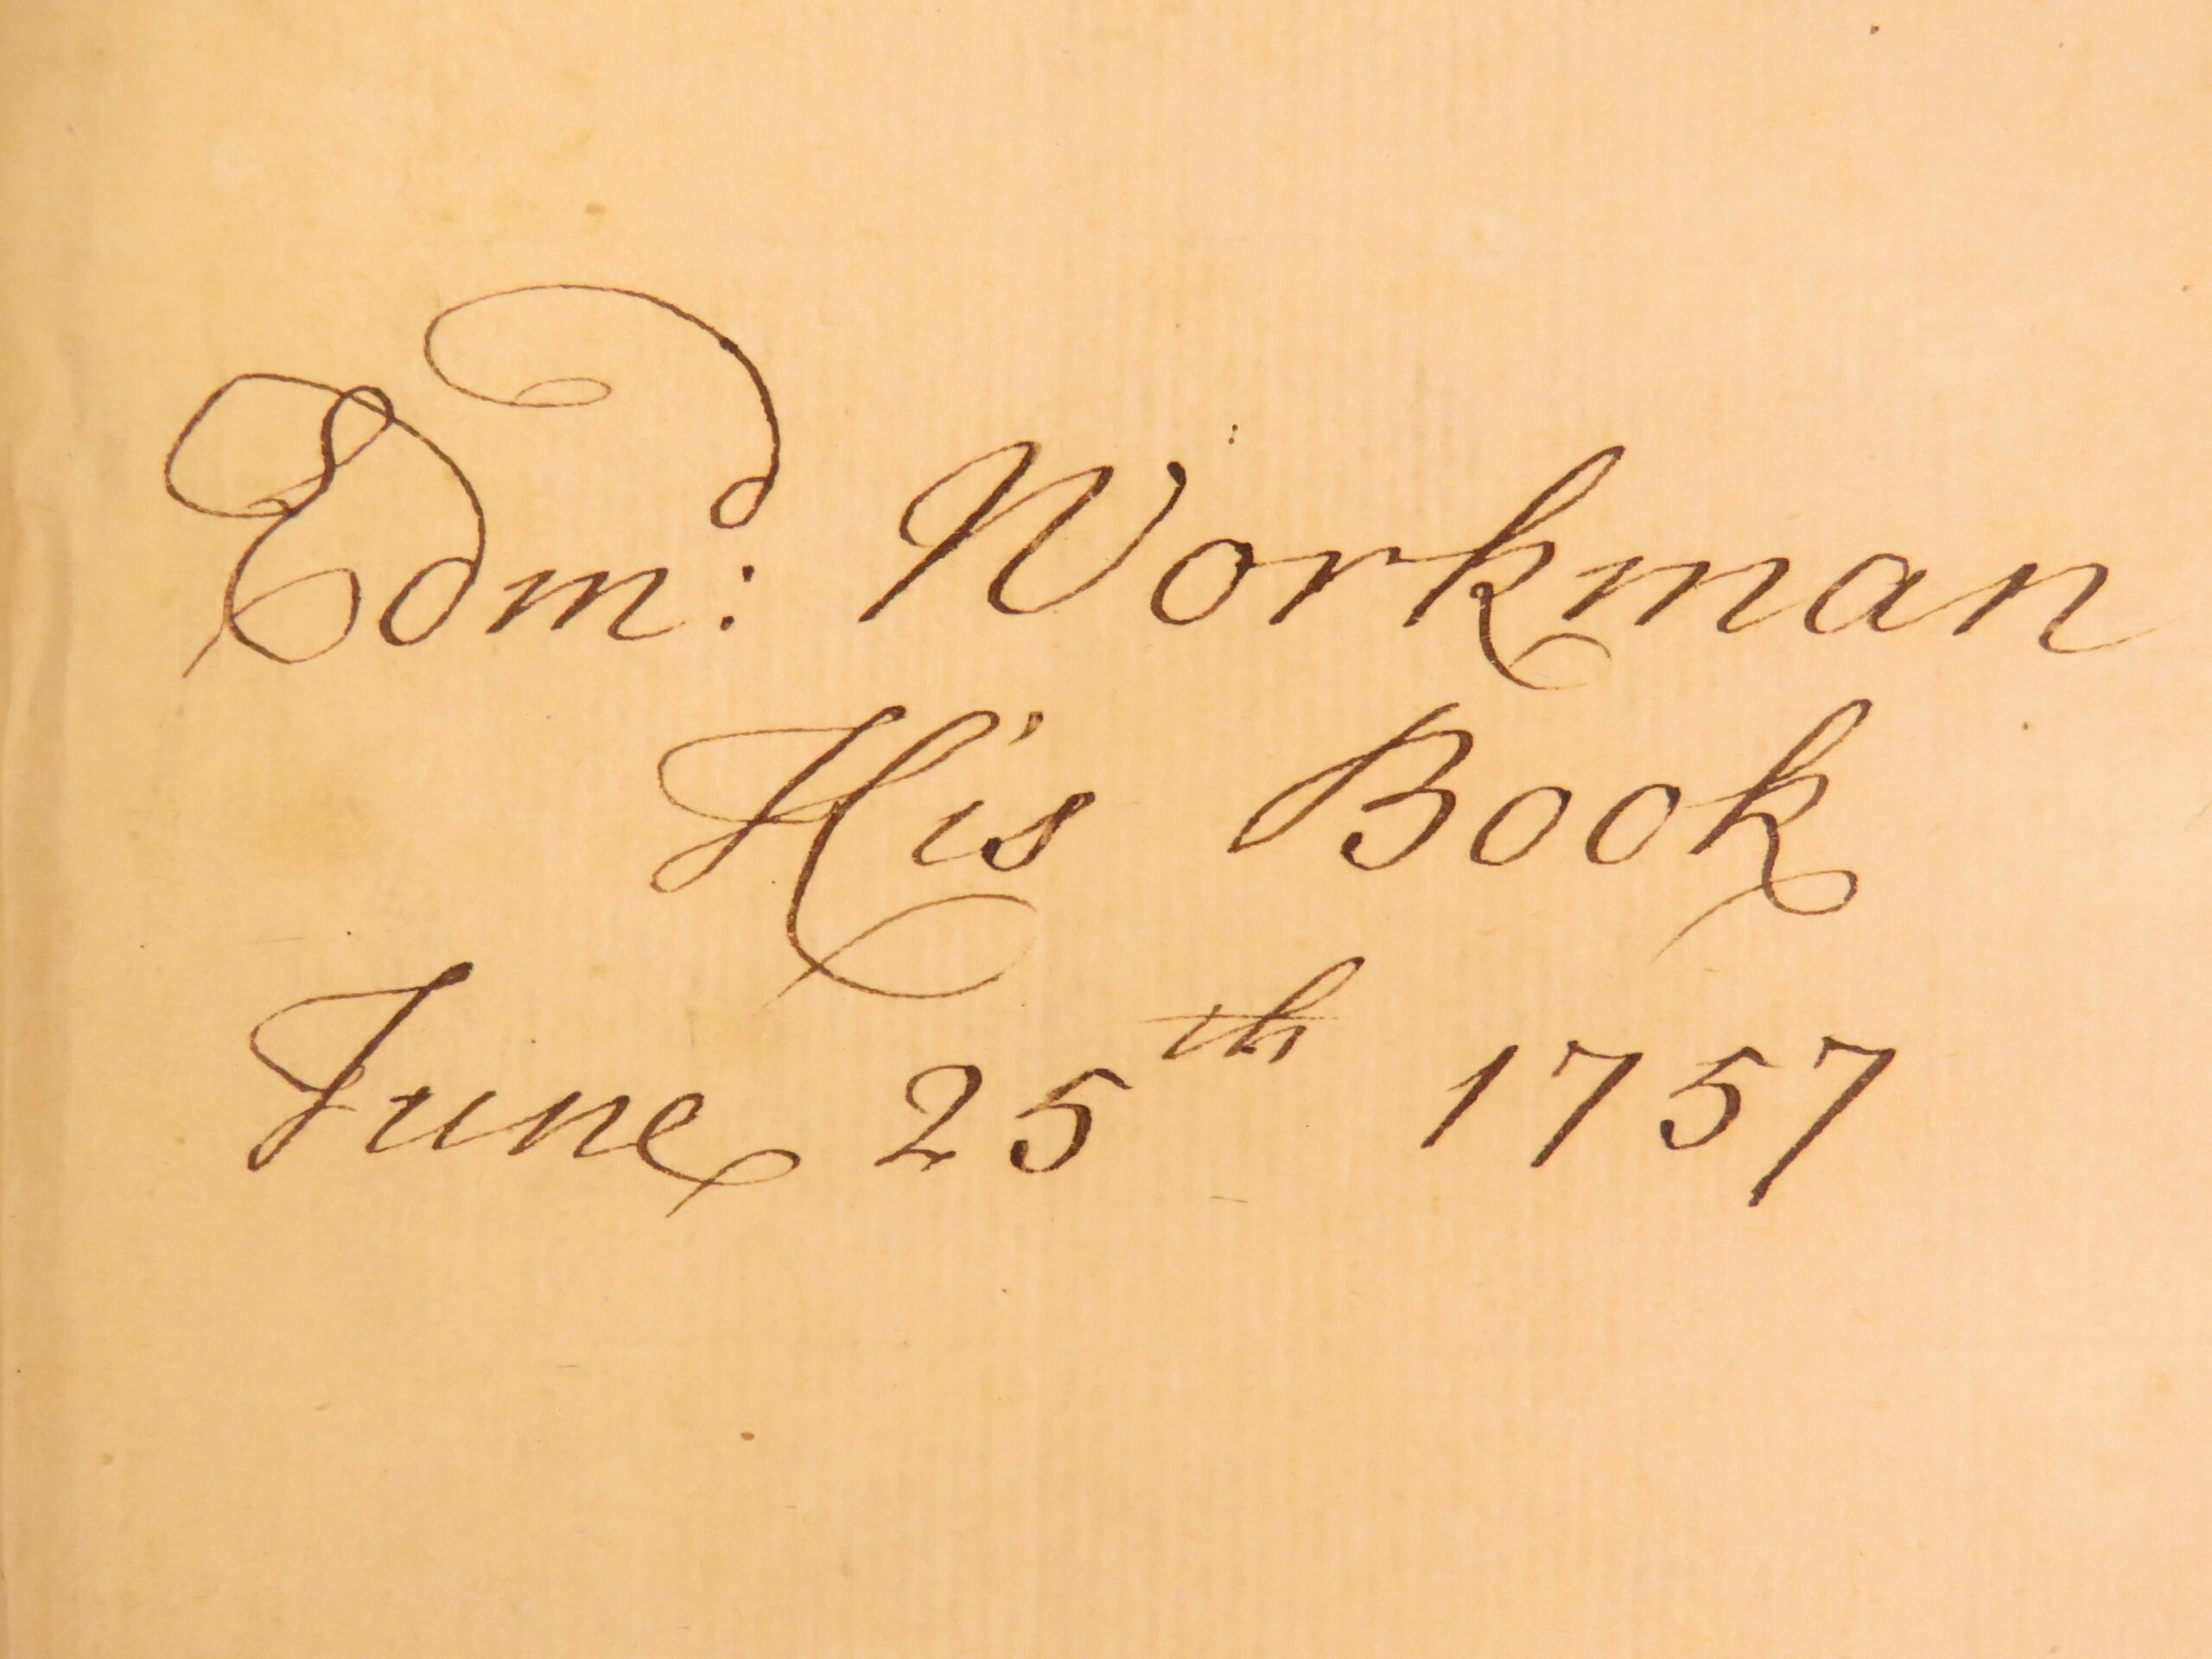 Edm:ᵈ Workman
His Book
June 25ᵗʰ 1757